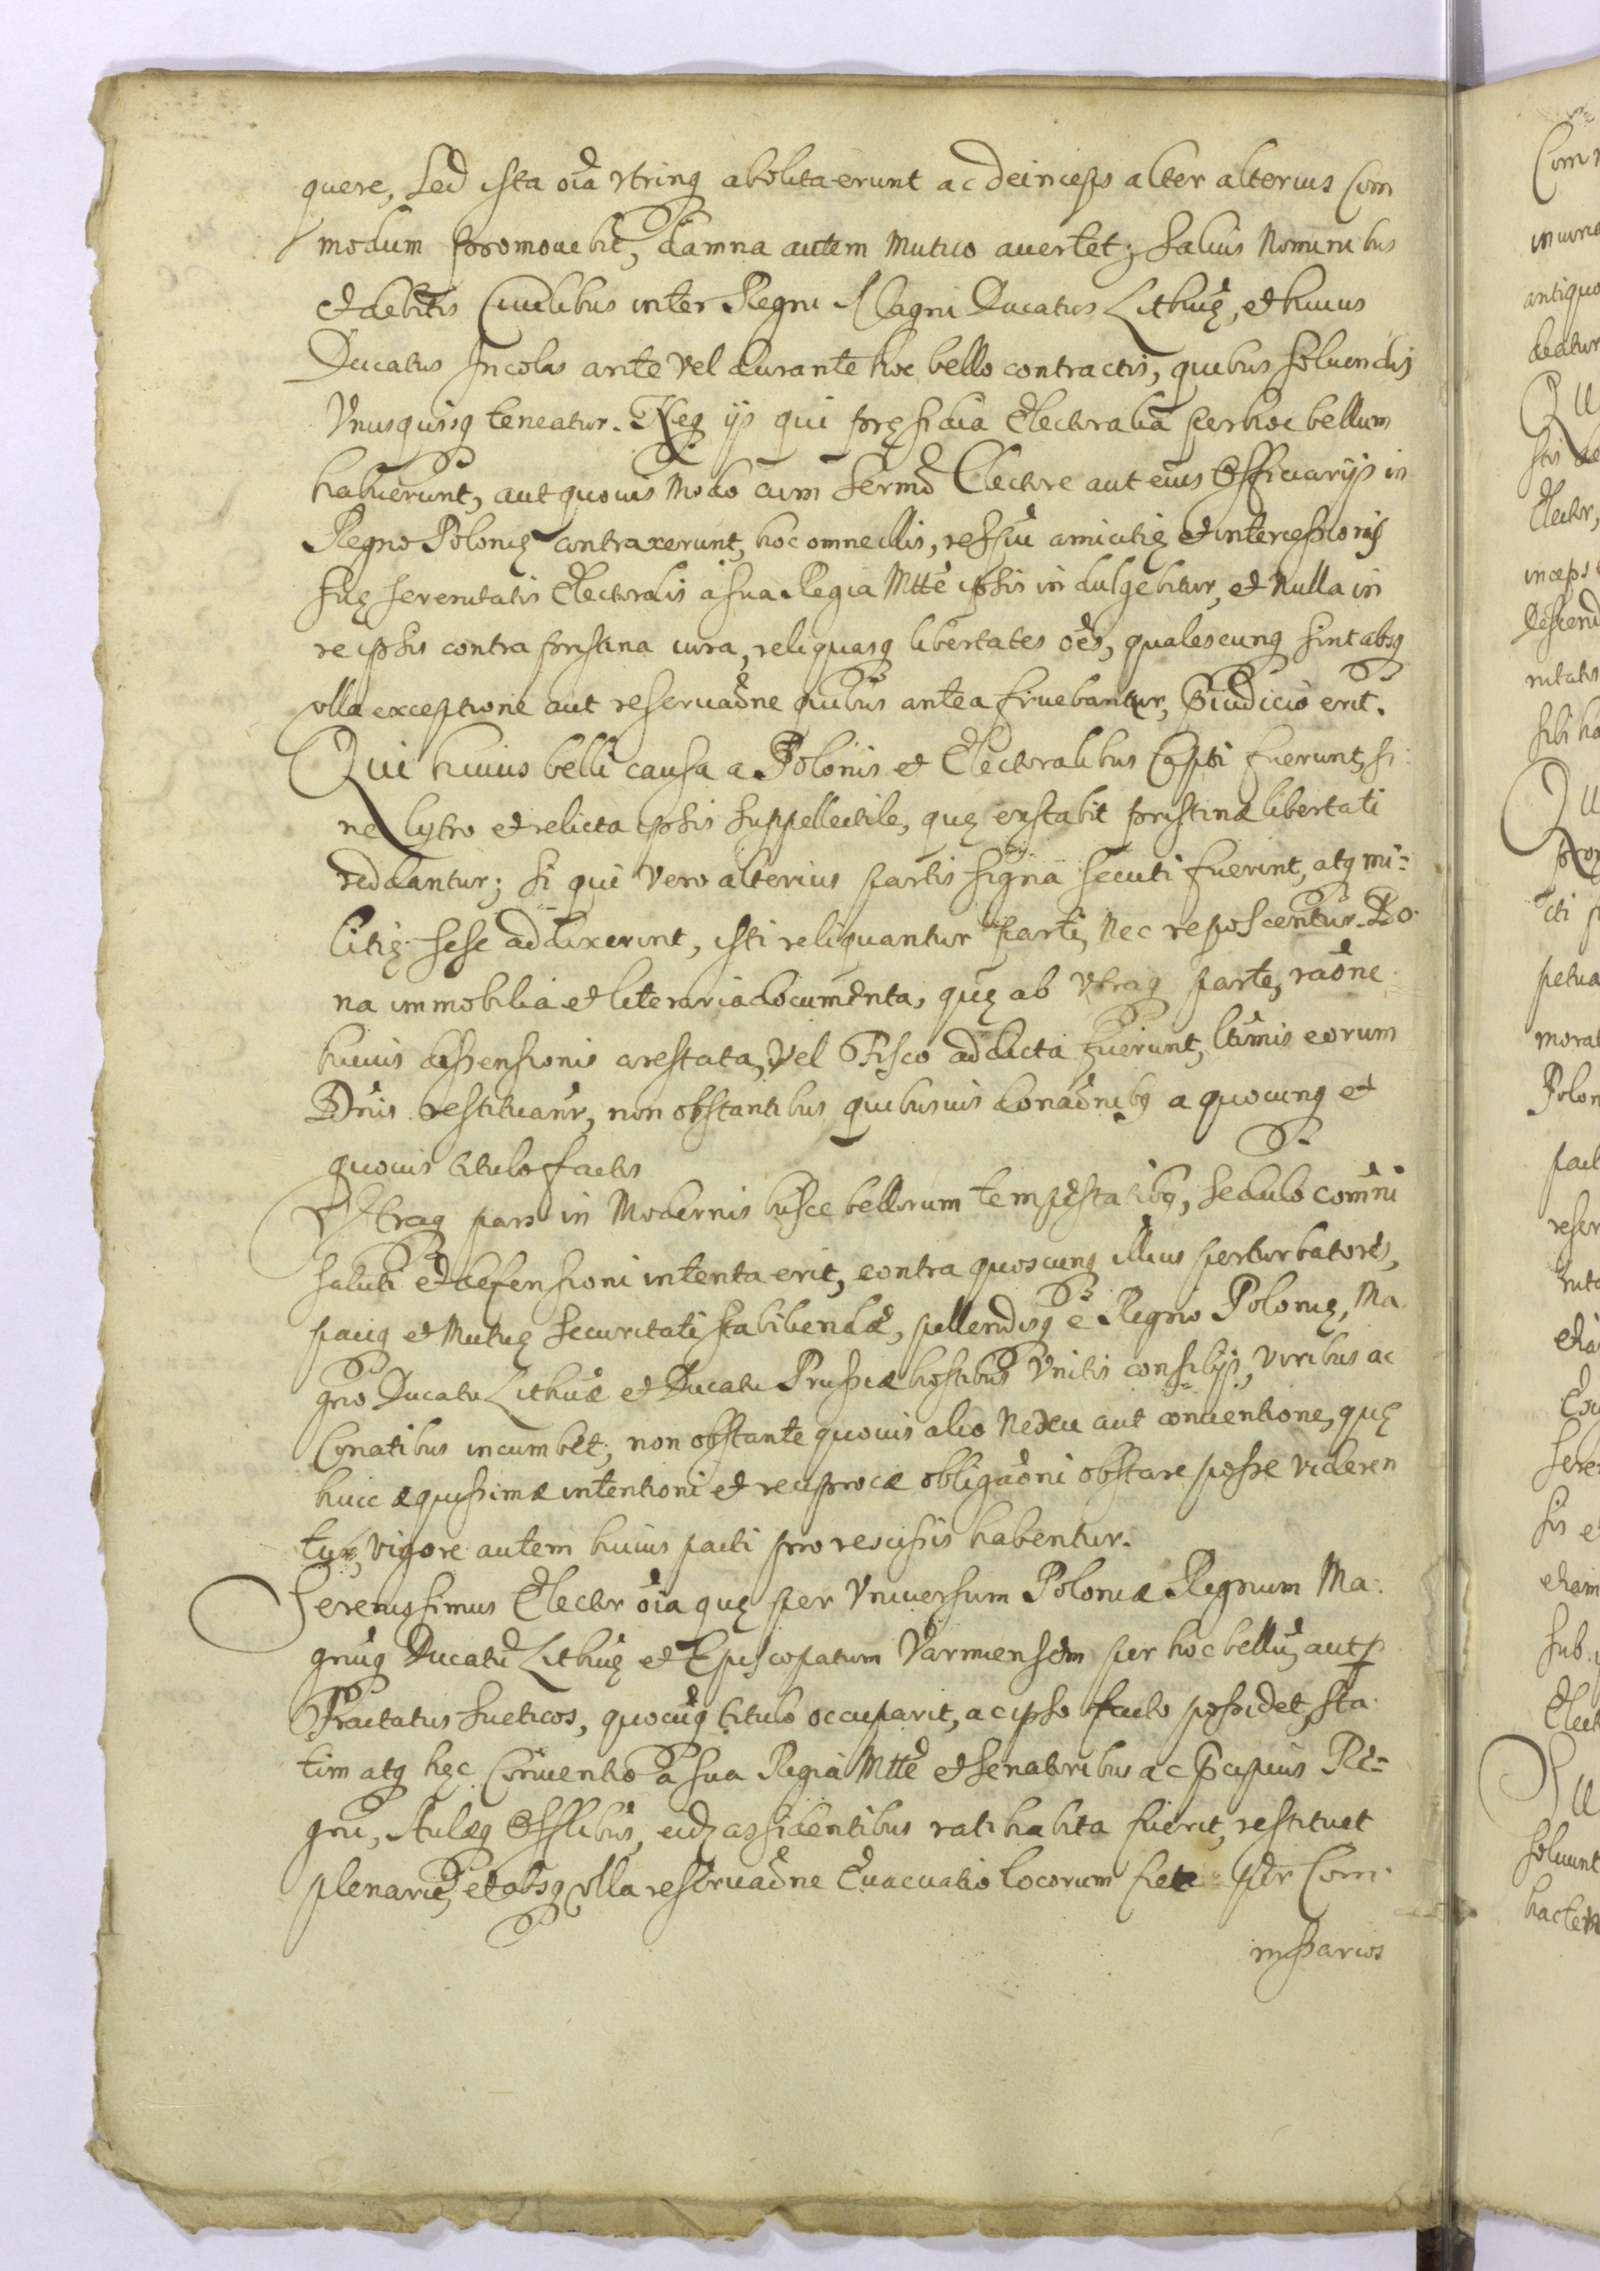 quere, Sed ista oia vtrinq abolita erunt ac deinceps alter alterius Com
modum promouebit, damna autem mutuo auertet; Saluis Nominibus
et debitis Ciuilibus inter Regni Magni Ducatus Lithuę, et huius
Ducatus Incolas ante vel durante hoc bello contractis, quibus soluendis
Vnusquisq teneatur. Neq ijs qui pręsidia Electoralia per hoc bellum
habuerunt, aut quouis modo cum Sermo Electore aut eius Officiarijs in
Regno Polonię contraxerunt, hoc omne illis, resp̃u amicitię et intercessionis
suę serenitatis Electoralis à sua Regia Mtte ipsis indulgebitur, et Nulla in
re ipsis contra pristina iura, reliquasq libertates oẽs, qualescunq sint absq
vlla exceptione aut reseruaõne quibus antea fruebantur, P̃iudicio erit.
Qui huius belli causa a Polonis et Electoralibus Capti fuerunt, si
ne lytro et relicta ipsis suppellectile, quę exstabit pristinæ libertati
reddantur; Si qui vero alterius partis signa secuti fuerint, atq mi=
litię sese addixerint, isti reliquantur parti, Nec reposcentur. Bo
na immobilia et literaria documenta, quę ab vtraq parte, raõne
huius dissensionis arestata, Vel Fisco addicta fuerunt, ltimis eorum
Dnis restituanr, non obstantibus quibusuis donaõnibq a quocunq et
quouis titulo factis
Vtraq pars in Modernis hisce bellorum tempestatibq, sedulo com̃ni
saluti et defensioni intenta erit, contra quoscunq illius perturbatores,
paciq et Mutuę securitati stabiliendæ, pellendisq è Regno Polonię, Ma
gno Ducatu Lithuæ et Ducatu Prussiæ hostibus Vnitis consilijs, viribus ac
Conatibus incumbet; non obstante quouis alio Nexu aut conuentione, quę
huic æquissimæ intentioni et reciprocæ obligaõni obstare posse videren
tur, vigore autem huius pacti pro rescissis habentur.
Serenissimus Elector oia quę per Vniuersum Poloniæ Regnum Ma
gnuq Ducatu Lithuę et Episcopatum Varmiensem per hoc bellu, aut p
Tractatus Sueticos, quocuq titulo occuparit, ac ipso facto possidet, sta
tim atq hęc Conuentio a sua Regia Mtte et Senatoribus ac P̃cipuis Re=
gni, Aulæq Offlibus, eidz assidentibus ratihabita fuerit, restituet
plenarie, et absq vlla reseruaõne Euacuatio locorum fiet per Com
mssarios